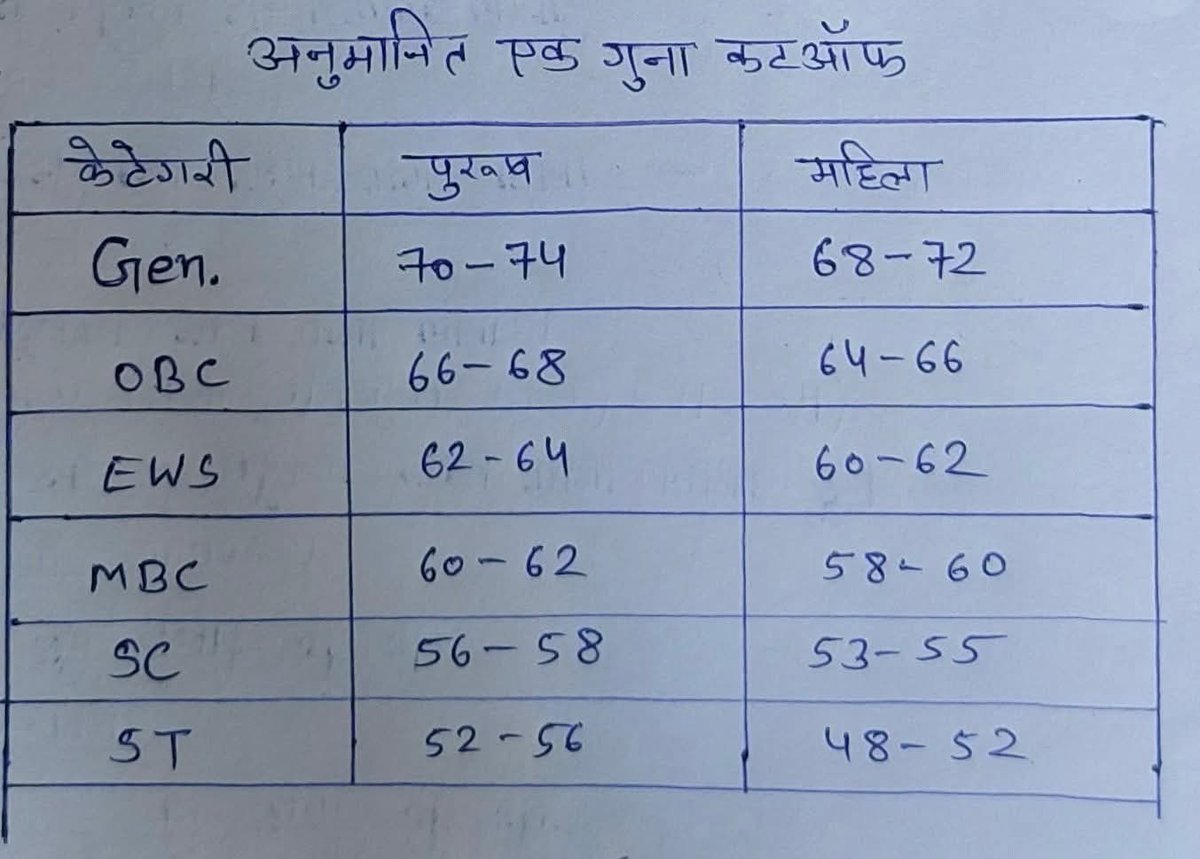 अनुमानित एक गुना कटऑफ
केटेगरी पुरूष महिला
Gen. 70-74 68-72
OBC 66-68 64-66
EWS 62-64 60-62
MBC 60-62 58-60
SC 56-58 53-55
ST 52-56 48-52